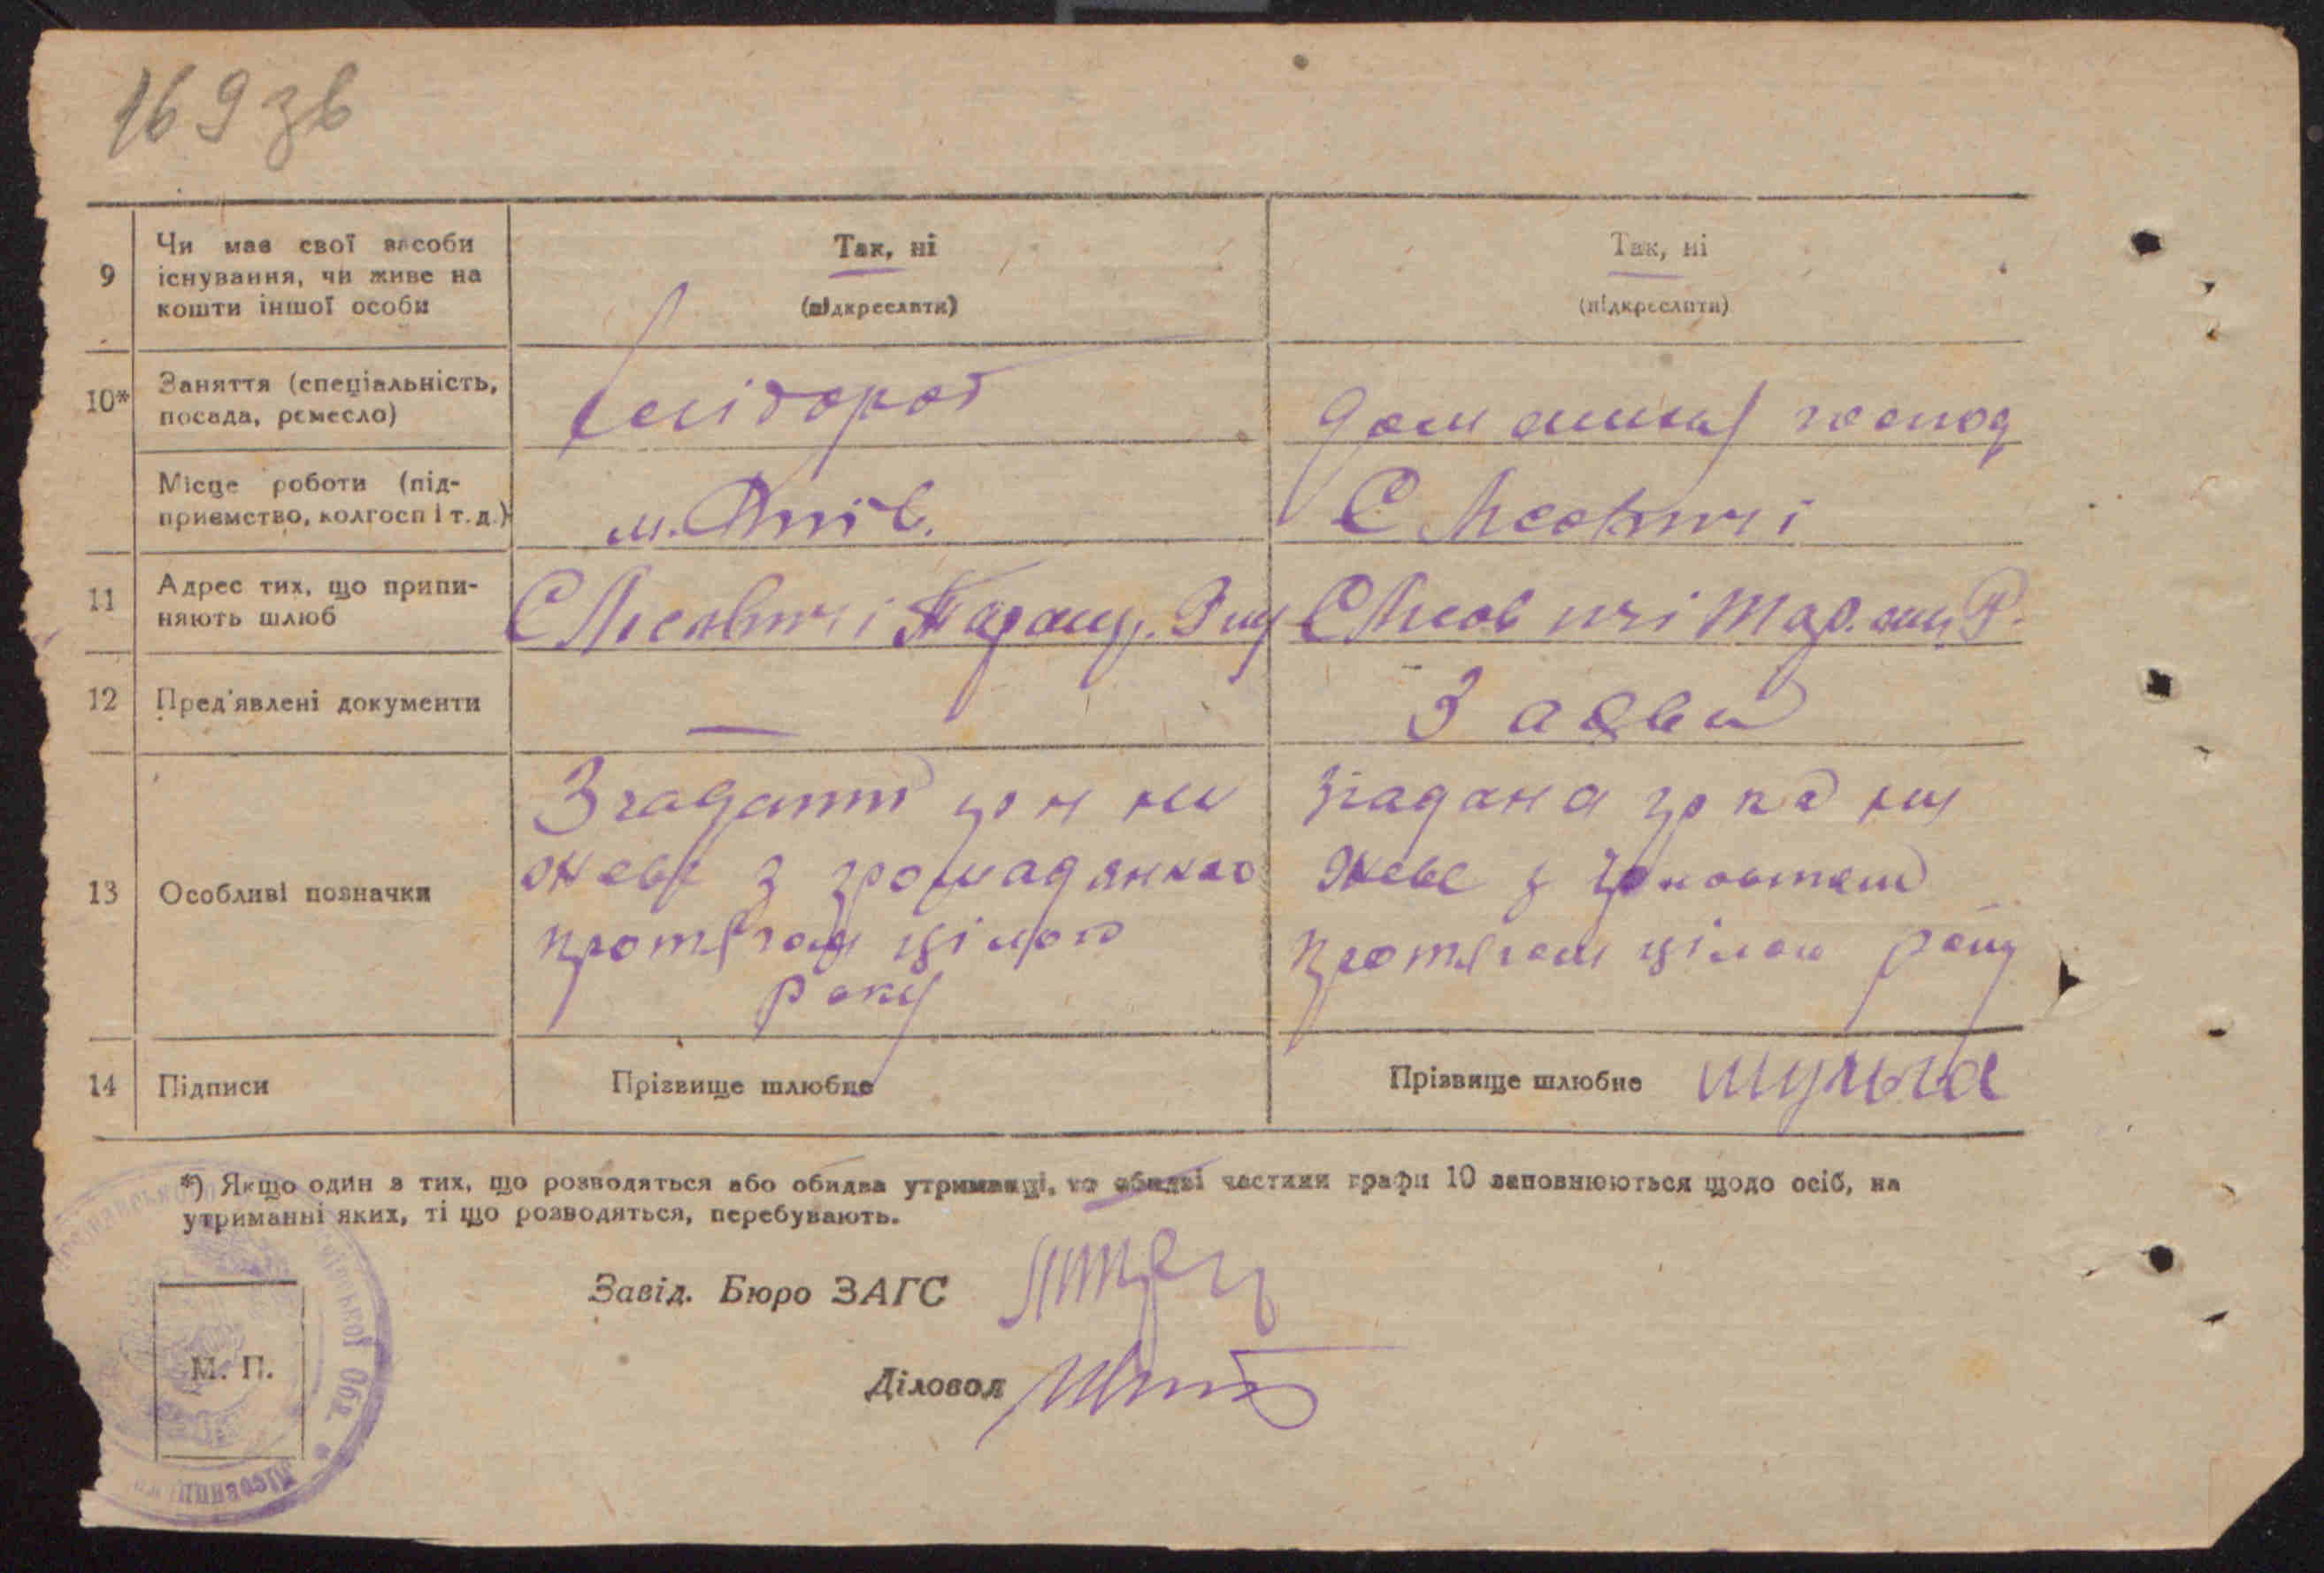 169 зв
9
Чи має свої засоби
існування, чи живе на
кошти іншої особи
Так, ні
(підкреслити)
Так, ні
(підкреслити)
10*
Заняття (спеціальність,
посада, ремесло)
домашня господ
Місце роботи (під-
приємство, колгосп і т. д.)
м. Київ.
С Лісовичі
11
Адрес тих, що припи-
няють шлюб
С Лісовичі Таращ.
С Лісовичі Таращ Р.
12
Пред'явлені документи
—
Заява
13
Особливі позначки
Згаданий гр н не
живе з громадянкою
протягом цілого
року
Згадана гр ка не
живе з
протягом цілого року
14
Підписи
Прізвище шлюбне
Прізвище шлюбне Шульга
*) Якщо один з тих, що розводяться або обидва утриманці, то обидві частини графи 10 заповнюються щодо осіб, на
утриманні яких, ті що розводяться, перебувають.
Завід. Бюро ЗАГС
Діловод
М. П.
Київської Обл. *